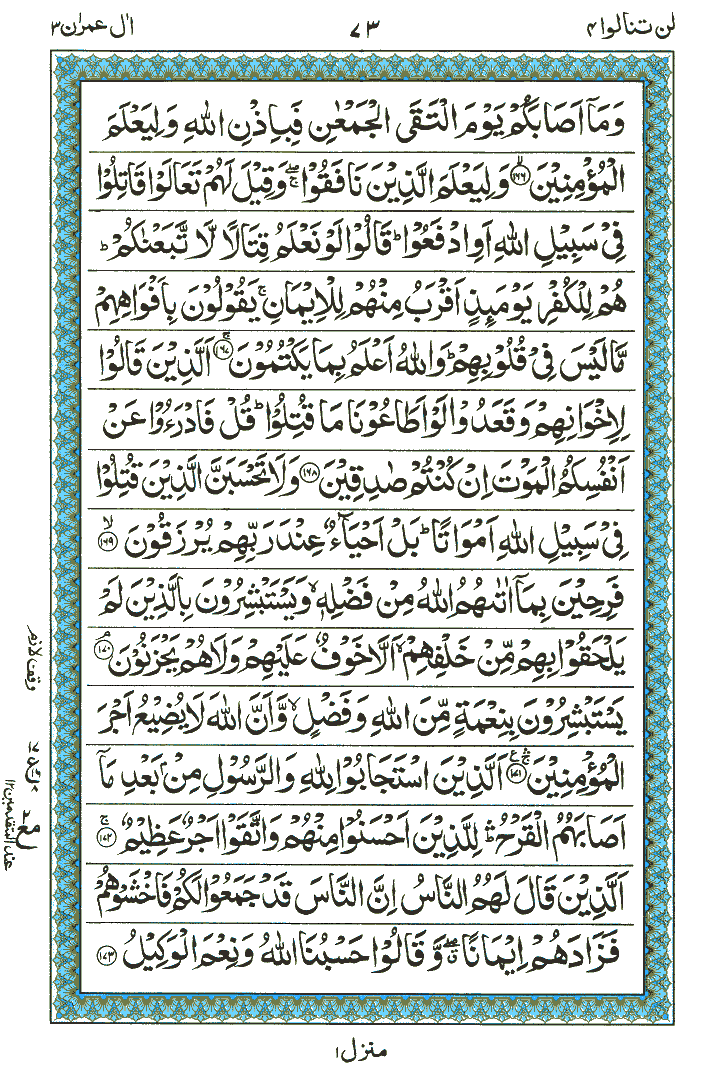 لن تنالوا ۴
۷۳
اٰل عمران ۳
وَمَآ اَصَابَكُمْ يَوْمَ الْتَقَى الْجَمْعٰنِ فَبِاِذْنِ اللّٰهِ وَلِيَعْلَمَ
الْمُؤْمِنِيْنَ ﴿۱۶۶﴾ۙ وَلِيَعْلَمَ الَّذِيْنَ نَافَقُوْاۖۚ وَقِيْلَ لَهُمْ تَعَالَوْا قَاتِلُوْا
فِيْ سَبِيْلِ اللّٰهِ اَوِ ادْفَعُوْاؕ قَالُوْا لَوْ نَعْلَمُ قِتَالًا لَّا تَّبَعْنٰكُمْؕ
هُمْ لِلْكُفْرِ يَوْمَىِٕذٍ اَقْرَبُ مِنْهُمْ لِلْاِيْمَانِۚ يَقُوْلُوْنَ بِاَفْوَاهِهِمْ
مَّا لَيْسَ فِيْ قُلُوْبِهِمْؕ وَاللّٰهُ اَعْلَمُ بِمَا يَكْتُمُوْنَ ﴿۱۶۷﴾ۚ اَلَّذِيْنَ قَالُوْا
لِاِخْوَانِهِمْ وَقَعَدُوْا لَوْ اَطَاعُوْنَا مَا قُتِلُوْاؕ قُلْ فَادْرَءُوْا عَنْ
اَنْفُسِكُمُ الْمَوْتَ اِنْ كُنْتُمْ صٰدِقِيْنَ ﴿۱۶۸﴾ وَلَا تَحْسَبَنَّ الَّذِيْنَ قُتِلُوْا
فِيْ سَبِيْلِ اللّٰهِ اَمْوَاتًاؕ بَلْ اَحْيَآءٌ عِنْدَ رَبِّهِمْ يُرْزَقُوْنَ ﴿۱۶۹﴾ۙ
فَرِحِيْنَ بِمَآ اٰتٰىهُمُ اللّٰهُ مِنْ فَضْلِهٖۙ وَيَسْتَبْشِرُوْنَ بِالَّذِيْنَ لَمْ
يَلْحَقُوْا بِهِمْ مِّنْ خَلْفِهِمْۙ اَلَّا خَوْفٌ عَلَيْهِمْ وَلَا هُمْ يَحْزَنُوْنَ ﴿۱۷۰﴾ۘ
يَسْتَبْشِرُوْنَ بِنِعْمَةٍ مِّنَ اللّٰهِ وَفَضْلٍۙ وَّاَنَّ اللّٰهَ لَا يُضِيْعُ اَجْرَ
الْمُؤْمِنِيْنَ ﴿۱۷۱﴾ اَلَّذِيْنَ اسْتَجَابُوْا لِلّٰهِ وَالرَّسُوْلِ مِنْۢ بَعْدِ مَآ
اَصَابَهُمُ الْقَرْحُۛؕ لِلَّذِيْنَ اَحْسَنُوْا مِنْهُمْ وَاتَّقَوْا اَجْرٌ عَظِيْمٌ ﴿۱۷۲﴾ۚ
اَلَّذِيْنَ قَالَ لَهُمُ النَّاسُ اِنَّ النَّاسَ قَدْ جَمَعُوْا لَكُمْ فَاخْشَوْهُمْ
فَزَادَهُمْ اِيْمَانًاۖ وَّقَالُوْا حَسْبُنَا اللّٰهُ وَنِعْمَ الْوَكِيْلُ ﴿۱۷۳﴾
وقف لازم
عند المتقدمين ۱۲
منزل ۱